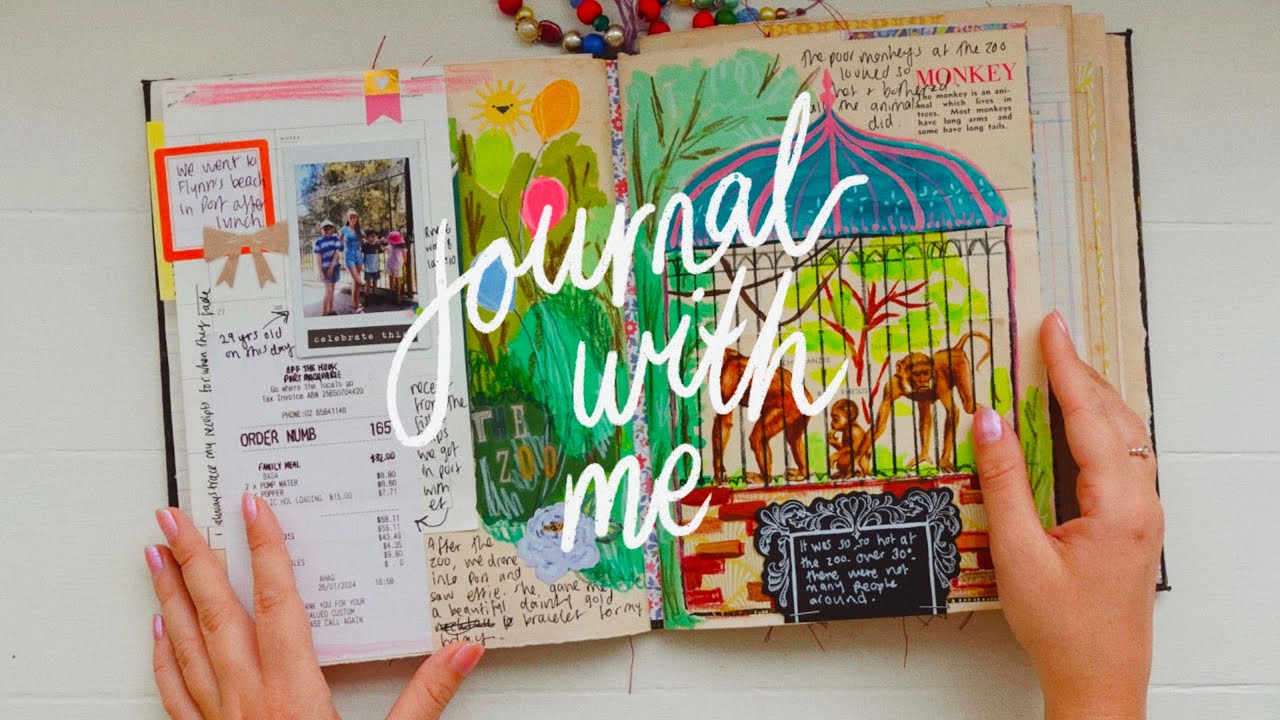 journal
with
me
We went to
Flynn's beach
in Port after
lunch
NOTES
celebrate this
29 yrs old
on this day
I always trace my receipts for when they fade
OFF THE HOOK
PORT MACQUARIE
Go where the locals go
Tax Invoice ABN 25650704420
PHONE:02 65841146
ORDER NUMB 165
FAMILY MEAL $32.00
2 x PUMP WATER
POPPER $7.71
HOL LOADING. %15.00
$59.11
$59.11
26/01/2024 16:58
THANK YOU FOR YOUR
VALUED CUSTOM
PLEASE CALL AGAIN
from the
we got
in port
with
THE
ZOO
After the
zoo, we drove
into Port and
saw effie. She gave me
a beautiful dainty gold
bracelet for my
bday.
The poor monkeys at the zoo
looked so
hot + bothered
all the animals
did.
MONKEY
The monkey is an ani-
mal which lives in
trees. Most monkeys
have long arms and
some have long tails.
RHESUS
It was so, so hot at
the zoo. over 30°.
there were not
many people
around.